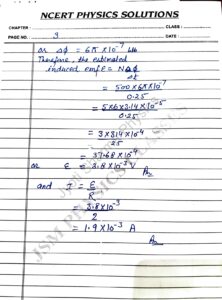 NCERT PHYSICS SOLUTIONS
CHAPTER :
CLASS :
PAGE NO. 3
DATE :
or Δϕ = 6π × 10⁻⁷ Wb
Therefore, the estimated
induced emf ε = NΔϕ
Δt
= 500 × 6π × 10⁻⁷
0.25
= 5 × 6 × 3.14 × 10⁻⁵
0.25
= 3 × 3.14 × 10⁻⁴
.25
= 37.68 × 10⁻⁴
or ε = 3.8 × 10⁻³ V
Ans
and I = ε
R
= 3.8 × 10⁻³
2
= 1.9 × 10⁻³ A
Ans
JSM PHYSICS CLASSES